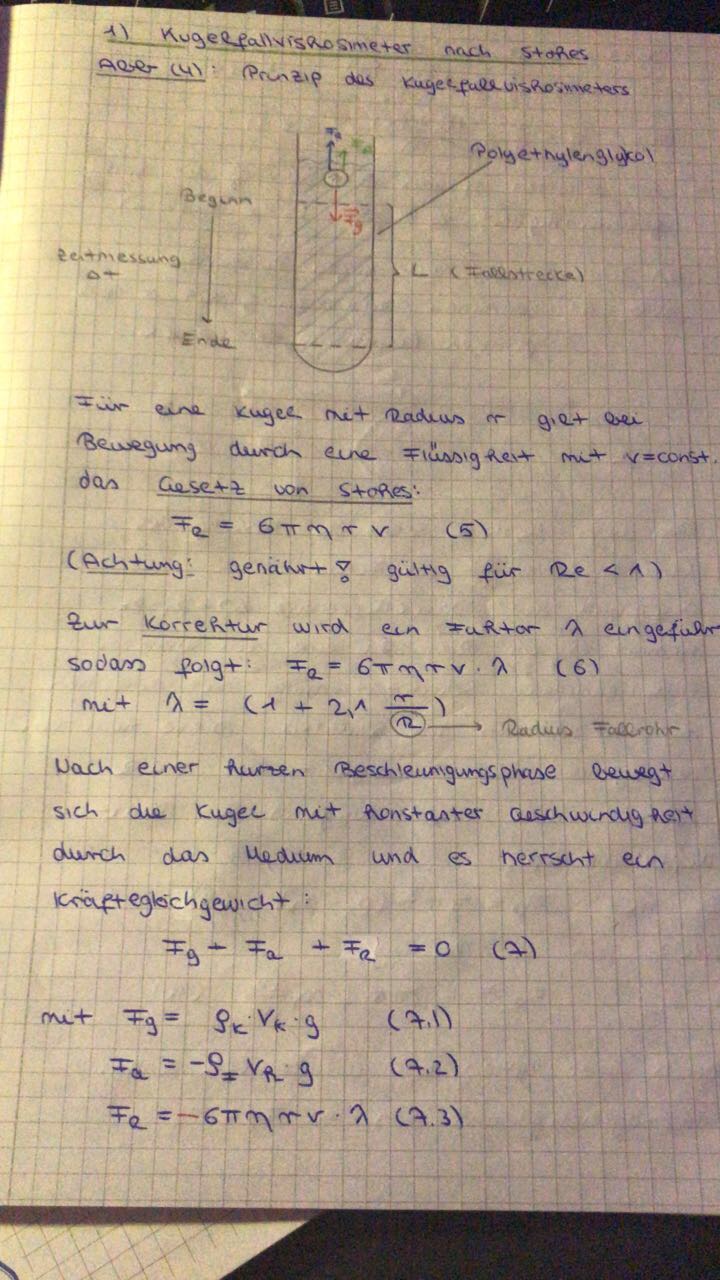 1) Kugelfallviskosimeter nach Stokes
Abb (4): Prinzip des Kugelfallviskosimeters
Polyethylenglykol
Beginn
F⃗g
Zeitmessung
Δt
L (Fallstrecke)
Ende
Für eine Kugel mit Radius r gilt bei
Bewegung durch eine Flüssigkeit mit v=const.
das Gesetz von Stokes:
FR = 6πηrv (5)
(Achtung: genährt! gültig für Re < 1)
Zur Korrektur wird ein Faktor λ eingeführ
sodass folgt: FR = 6πηrv·λ (6)
mit λ = (1 + 2,1 r/R) → Radius Fallrohr
Nach einer kurzen Beschleunigungsphase bewegt
sich die Kugel mit konstanter Geschwindigkeit
durch das Medium und es herrscht ein
Kräftegleichgewicht:
Fg + Fa + FR = 0 (7)
mit Fg = ρK·VK·g (7.1)
Fa = -ρF VK·g (7.2)
FR = -6πηrv·λ (7.3)